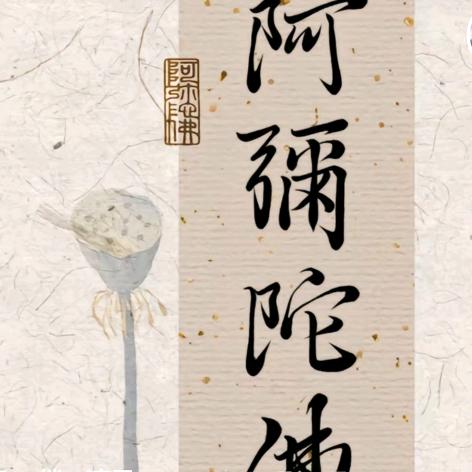 阿彌陀佛
阿弥陀佛